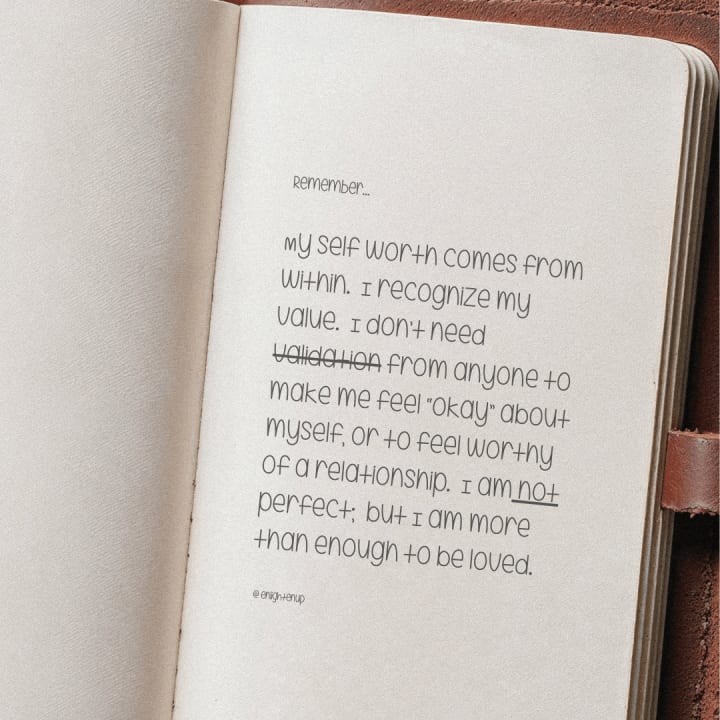 Remember...
My self worth comes from
within. I recognize my
value. I don't need
validation from anyone to
make me feel "okay" about
myself, or to feel worthy
of a relationship. I am not
perfect; but I am more
than enough to be loved.
@enlightenup